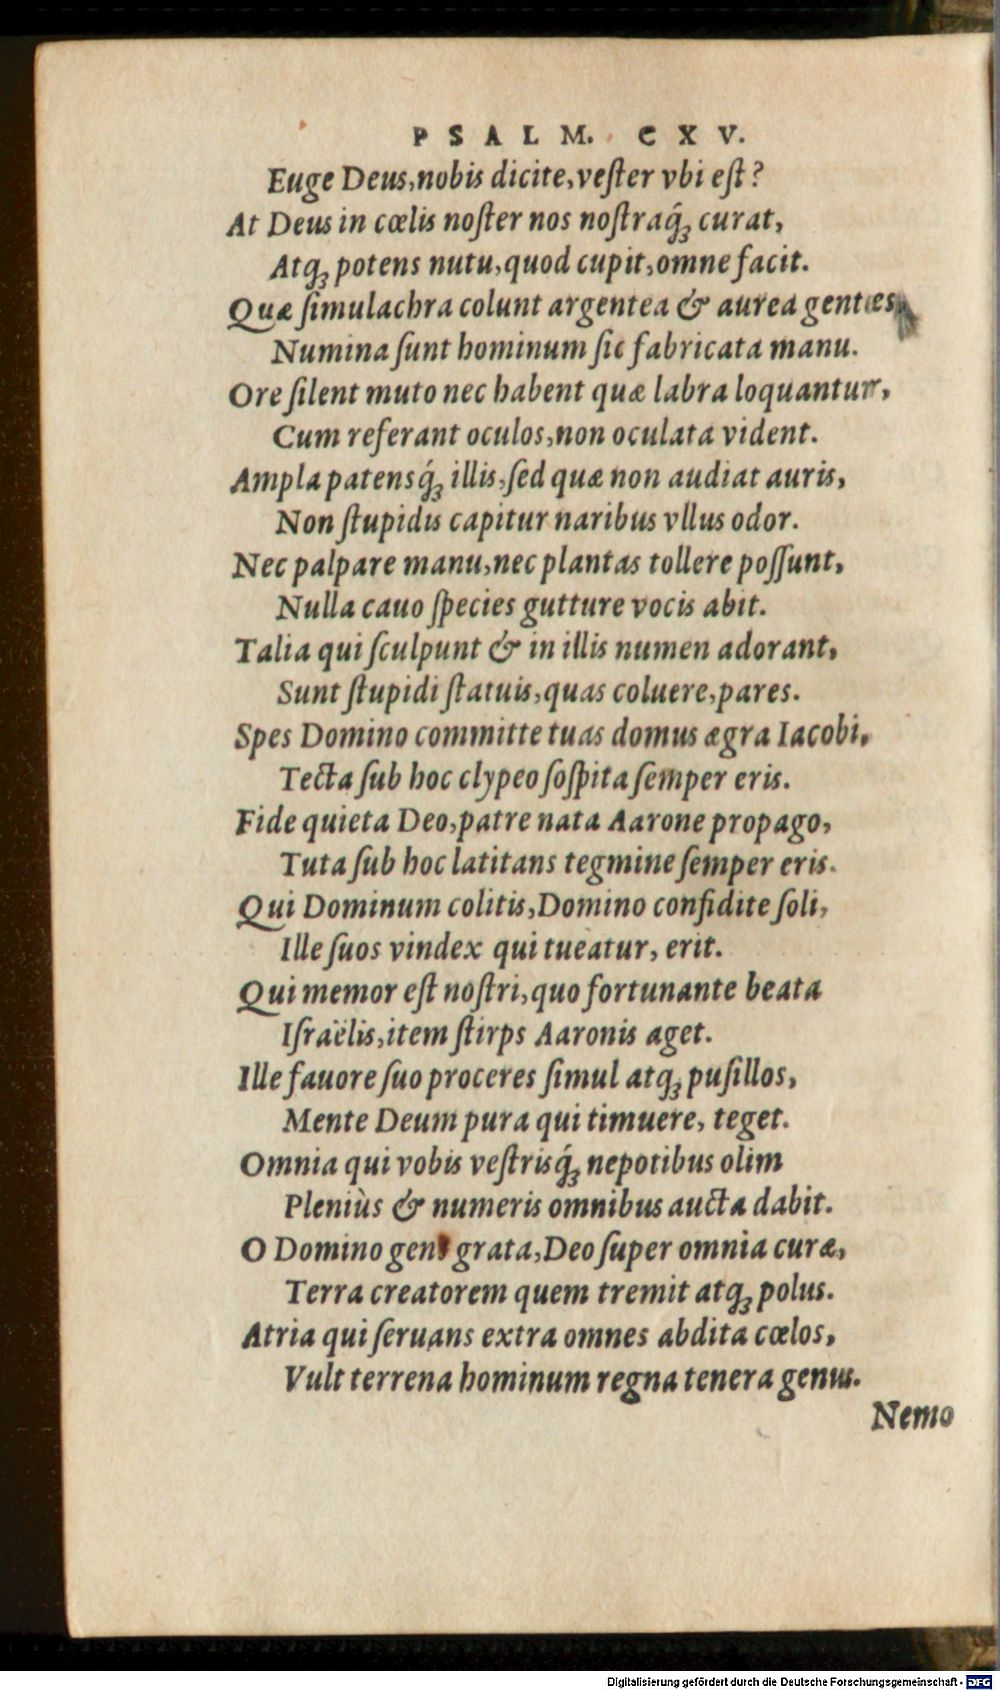 PSALM. CXV.
Euge Deus, nobis dicite, veſter vbi eſt?
At Deus in cœlis noſter nos noſtraq́ꝫ curat,
Atqꝫ potens nutu, quod cupit, omne facit.
Quæ ſimulachra colunt argentea & aurea gentes,
Numina ſunt hominum ſic fabricata manu.
Ore ſilent muto nec habent quæ labra loquantur,
Cum referant oculos, non oculata vident.
Ampla patensq́ꝫ illis, ſed quæ non audiat auris,
Non ſtupidis capitur naribus vllus odor.
Nec palpare manu, nec plantas tollere poſſunt,
Nulla cauo ſpecies gutture vocis abit.
Talia qui ſculpunt & in illis numen adorant,
Sunt ſtupidi ſtatuis, quas coluere, pares.
Spes Domino committe tuas domus ægra Iacobi,
Tecta ſub hoc clypeo ſoſpita ſemper eris.
Fide quieta Deo, patre nata Aarone propago,
Tuta ſub hoc latitans tegmine ſemper eris.
Qui Dominum colitis, Domino confidite ſoli,
Ille ſuos vindex qui tueatur, erit.
Qui memor eſt noſtri, quo fortunante beata
Iſraëlis, item ſtirps Aaronis aget.
Ille fauore ſuo proceres ſimul atqꝫ puſillos,
Mente Deum pura qui timuere, teget.
Omnia qui vobis veſtrisq́ꝫ nepotibus olim
Pleniùs & numeris omnibus aucta dabit.
O Domino gens grata, Deo ſuper omnia curæ,
Terra creatorem quem tremit atqꝫ polus.
Atria qui ſeruans extra omnes abdita cœlos,
Vult terrena hominum regna tenera genus.
Nemo
Digitalisierung gefördert durch die Deutsche Forschungsgemeinschaft - DFG